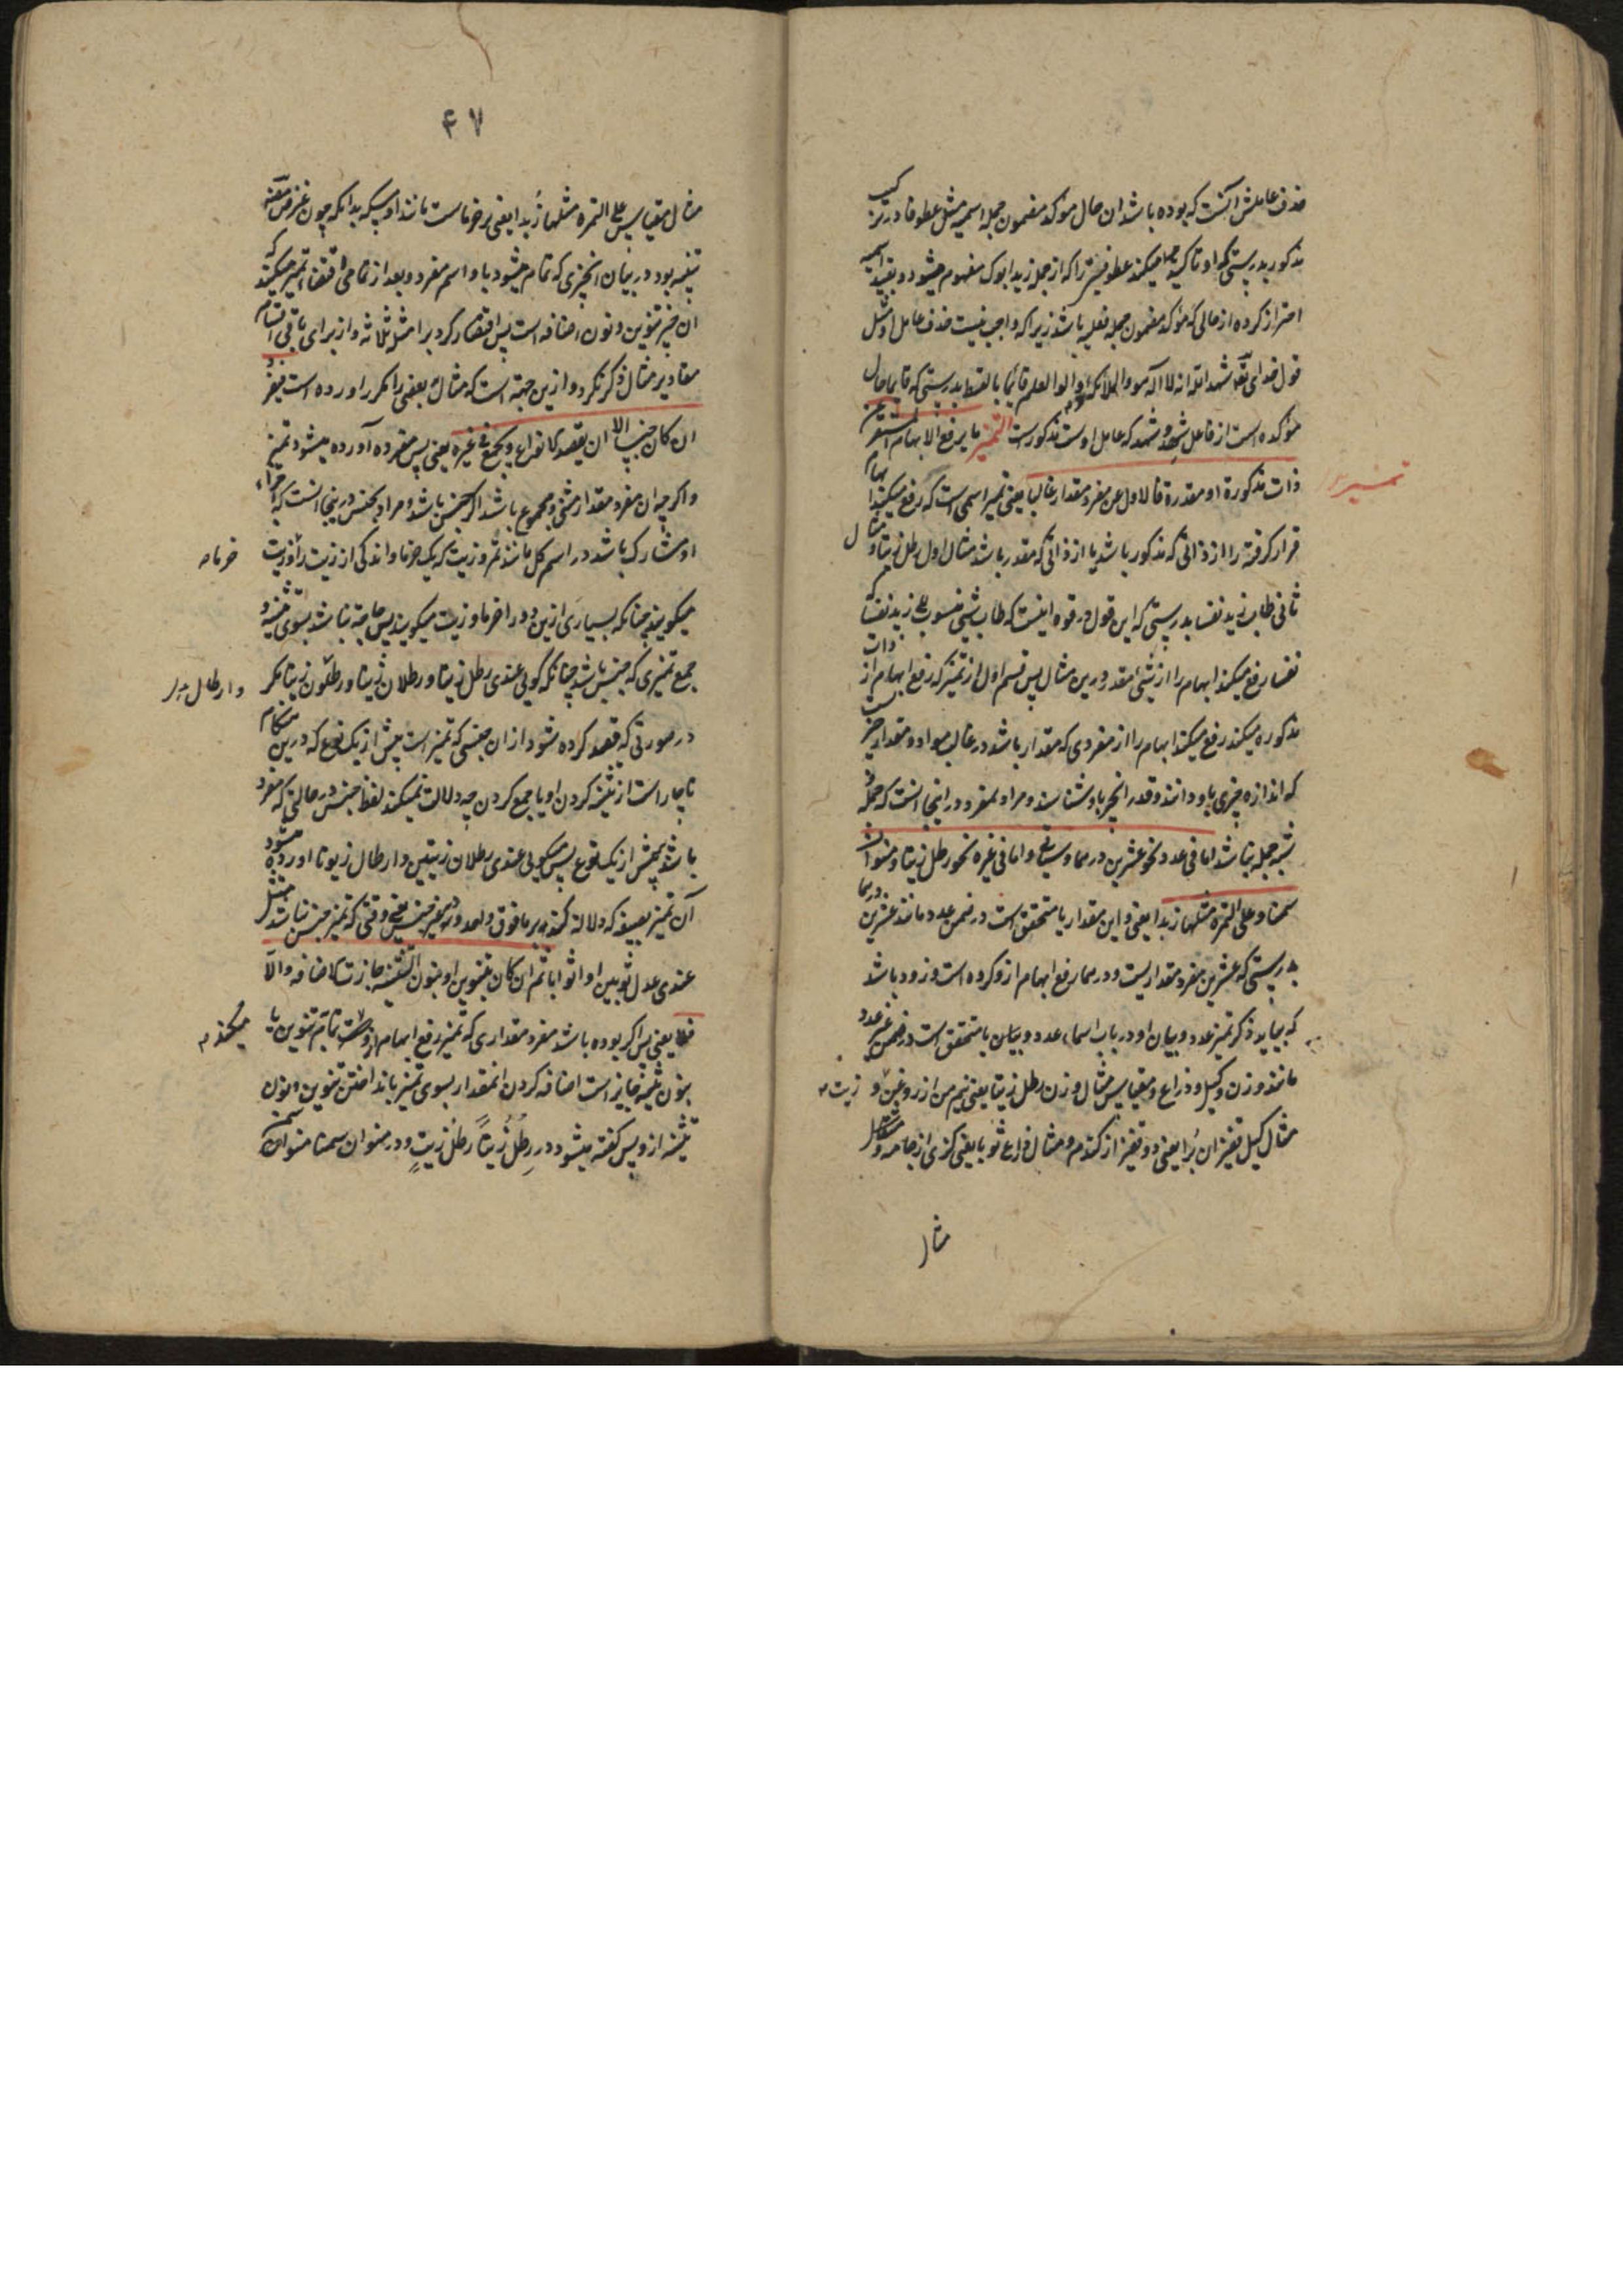 حذف عاملش آنست که بوده باشد ان حال موکد مضمون جمله اسمیه مثل عطوفا در ترکیب
مذکور بدرستی که او تاکید میکند عطوفیتی را که از جمله زید ابوک مفهوم میشود و بقید اسمیه
احتراز کرده از حالی که موکد مضمون جمله فعلیه باشد زیرا که واجب نیست حذف عامل او مثل
قول خدای تعالی شهد الله انه لا اله الا هو والملائکة واولوا العلم قائما بالقسط بدرستی که قایما حال
موکده است از فاعل شهد و شهد که عامل اوست مذکورست التمییز ما یرفع الابهام المستقر عن
تمییز
ذات مذکورة او مقدرة فالاول عن مفرد مقدار غالبا یعنی تمیز اسمی است که رفع میکند ابهام
قرار گرفته را از ذاتی که مذکور باشد یا از ذاتی که مقدر باشد مثال اول رطل زیتا و مثال
ثانی طاب زید نفسا بدرستی که این قول در قوه اینست که طاب شیئ منسوب الی زید نفسا که
نفسا رفع میکند ابهام را از شیئ مقدر درین مثال پس قسم اول از تمیز که رفع ابهام از ذات
مذکوره میکند رفع میکند ابهام را از مفردی که مقدار باشد در غالب مواد و مقدار چیزیست
که اندازه چیزی باو دانند و قدر انچیز باو شناسند و مراد بمفرد در اینجا انست که جمله و
شبه جمله نباشد اما فی عدد نحو عشرین درهما وسیاتی واما فی غیره نحو رطل زیتا ومنوان
سمنا وعلی التمرة مثلها زبدا یعنی و این مقدار یا متحقق است در ضمن عدد مانند عشرین درهما
بدرستی که عشرین مفرد مقداریست و درهما رفع ابهام ازو کرده است و زود باشد
که بیاید ذکر تمیز عدد و بیان او در باب اسماء عدد و بیان یا متحقق است در ضمن غیر عدد
مانند وزن و کیل و ذراع و مقیاس مثال وزن رطل زیتا یعنی نیم من از روغن زیت و
مثال کیل قفیزان برا یعنی دو قفیز از گندم و مثال ذراع ثوبا یعنی گزی از جامه و
مثال
۴۷
مثال مقیاس علی التمرة مثلها زبدا یعنی بر خرماست مانند او مسکه بدانکه چون غرض مصنف
تنبیه بود در بیان انچیزی که تمام میشود باو اسم مفرد و بعد از تمامی اقتضاء تمیز میکند که
ان چیز تنوین و نون و اضافه است پس اقتصار کرد بر امثله ثلاثه و از برای باقی اقسام
مقادیر مثال ذکر نکرد و ازین جهة است که مثال بعضی را مکرر اورده است فیفرد
ان کان جنسا الا ان یقصد الانواع ویجمع فی غیره یعنی پس مفرد آورده میشود تمیز
و اگرچه ان مفرد مقدار مثنی و مجموع باشد اگر جنس باشد و مراد بجنس در اینجا انست که اجزاء
او مشارک باشد در اسم کل مانند تمر و زیت که یک خرما و اندکی از زیت را خرما و زیت
میگویند چنانکه بسیاری ازین دو را خرما و زیت میگویند پس حاجة نباشد بسوی تثنیه و
جمع تمیزی که جنس باشد چنانکه گوئی عندی رطل زیتا و رطلان زیتا و ارطال زیتا مگر
در صورتی که قصد کرده شود از ان جنسی که تمیز است بیش از یک نوع که درین هنگام
ناچار است از تثنیه کردن او یا جمع کردن چه دلالت نمیکند لفظ جنس در حالتی که مفرد
باشد بر بیش از یک نوع پس میگوئی عندی رطلان زیتین و ارطال زیوتا و اورده میشود
آن تمیز بصیغه که دلالة کند بر ما فوق واحد در غیر جنس یعنی وقتی که تمیز جنس نباشد مثل
عندی عدل ثوبین او اثوابا ثم ان کان بتنوین او بنون التثنیة جازت الاضافة والا
فلا یعنی پس اگر بوده باشد مفرد مقداری که تمیز رفع ابهام ازو میکند تمام بتنوین یا
بنون تثنیه جایز است اضافه کردن انمقدار بسوی تمیز بانداختن تنوین و نون
تثنیه ازو پس گفته میشود در رطل زیتا رطل زیت و در منوان سمنا منوا سمن